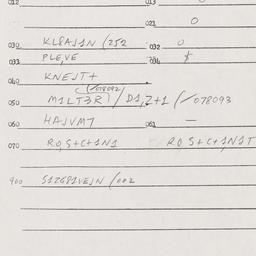 012 013
021 0
030 KL8AJ1N (252 032 0
033 PLEVE 034 $
040 KNEJT+
(✓078092)
050 M1LT3R) / D1,2+1 (✓078093
060 HAJVM7 061 —
070 RO,S+C+1N1 RO S+C+1N1T
900 S1Z681VEJN /002